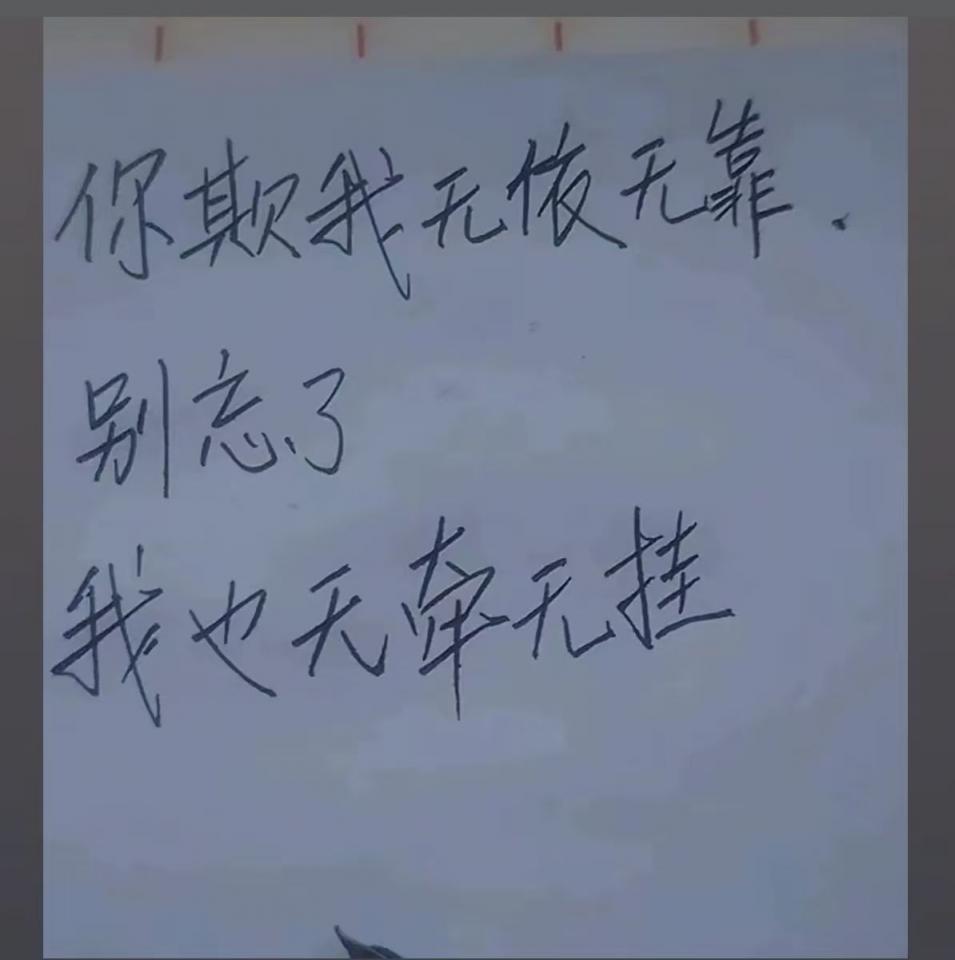 你欺我无依无靠.
别忘了
我也无牵无挂